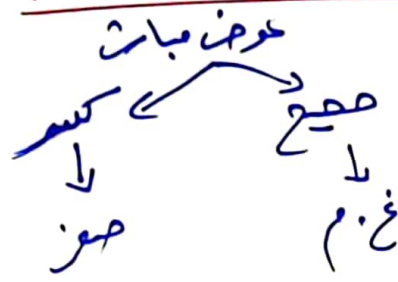 عوض مباشر
صحيح كسر
غ.م صفر